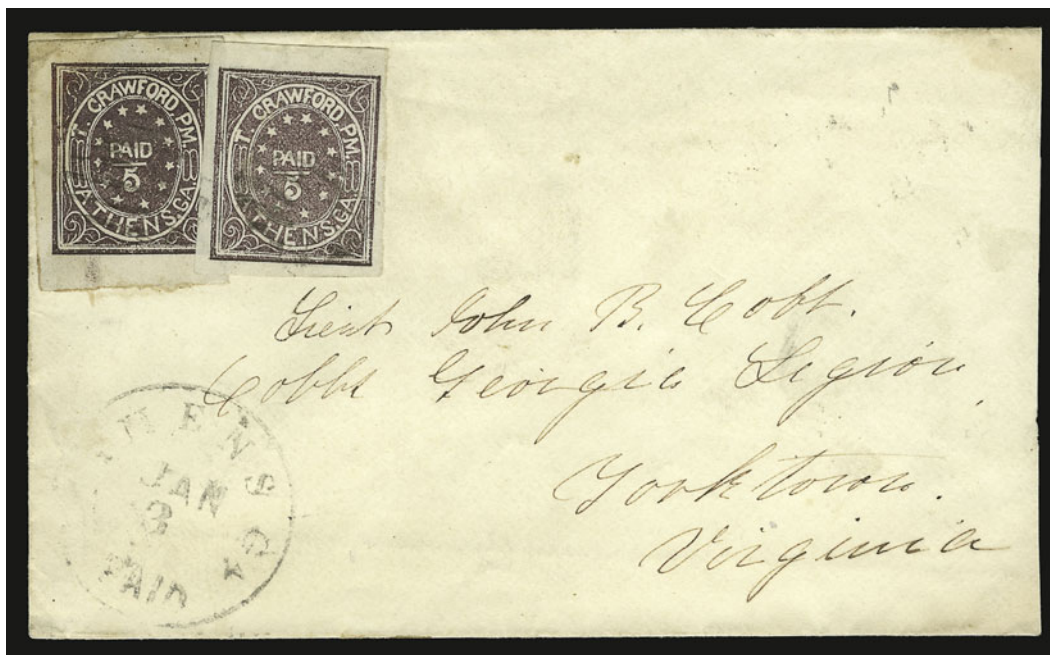 T. CRAWFORD, P.M.
PAID
5
ATHENS, GA.
T. CRAWFORD, P.M.
PAID
5
ATHENS, GA.
Lieut John B. Cobb.
Cobbs Georgia Legion
Yorktown.
Virginia
ATHENS GA
JAN
3
PAID